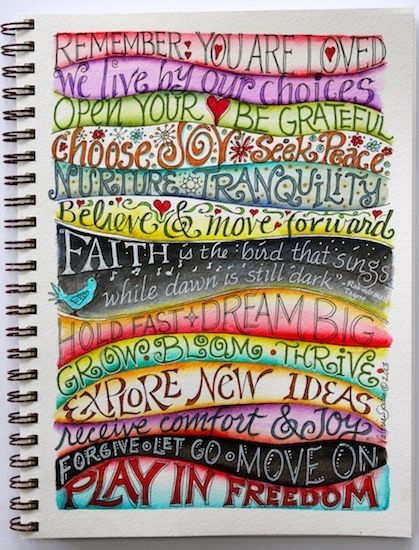 REMEMBER: YOU ARE LOVED
we live by our choices
OPEN YOUR ♥ BE GRATEFUL
choose JOY seek Peace
NURTURE TRANQUILITY
Believe & move forward
"FAITH is the bird that sings
while dawn is still dark."
HOLD FAST • DREAM BIG
GROW • BLOOM • THRIVE
EXPLORE NEW IDEAS
receive comfort & JOY
FORGIVE • LET GO • MOVE ON
PLAY IN FREEDOM